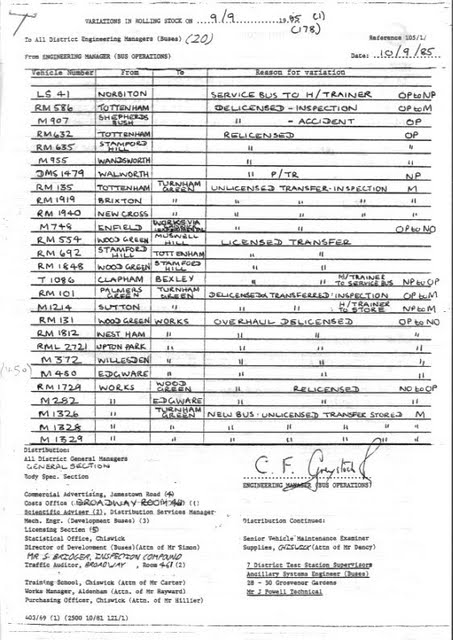 VARIATIONS IN ROLLING STOCK ON 9/9 1985 (1)
(178)
To All District Engineering Managers (Buses) (20) Reference 105/1/
From ENGINEERING MANAGER (BUS OPERATIONS) Date: 10/9/85
Vehicle Number From To Reason for variation
LS 41 NORBITON SERVICE BUS TO H/TRAINER OP to NP
RM 586 TOTTENHAM DELICENSED - INSPECTION OP to M
M 907 SHEPHERDS BUSH " - ACCIDENT OP
RM 632 TOTTENHAM RELICENSED OP
RM 635 STAMFORD HILL " "
M 955 WANDSWORTH " "
DMS 1479 WALWORTH " P/TR NP
RM 135 TOTTENHAM TURNHAM GREEN UNLICENSED TRANSFER - INSPECTION M
RM 1919 BRIXTON " " " "
RM 1940 NEW CROSS " " " "
M 748 ENFIELD WORKS VIA " " OP to NO
RM 554 WOOD GREEN MUSWELL HILL LICENSED TRANSFER
RM 692 STAMFORD HILL TOTTENHAM " "
RM 1848 WOOD GREEN STAMFORD HILL " "
T 1086 CLAPHAM BEXLEY " " H/TRAINER TO SERVICE BUS NP to OP
RM 101 PALMERS GREEN TURNHAM GREEN DELICENSED & TRANSFERRED - INSPECTION OP to M
M 1214 SUTTON " " " H/TRAINER TO STORE NP to M
RM 131 WOOD GREEN WORKS OVERHAUL DELICENSED OP to NO
RM 1812 WEST HAM " " " "
RML 2721 UPTON PARK " " " "
M 372 WILLESDEN " " " "
(450) M 480 EDGWARE " " " "
RM 1729 WORKS WOOD GREEN " RELICENSED NO to OP
M 282 " EDGWARE " " "
M 1326 " TURNHAM GREEN NEW BUS - UNLICENSED TRANSFER STORED M
M 1328 " " " " " "
M 1329 " " " " " "
Distribution:
All District General Managers
GENERAL SECTION
Body Spec. Section
C. F. Greystock
ENGINEERING MANAGER (BUS OPERATIONS)
Commercial Advertising, Jamestown Road (4)
Costs Office (BROADWAY ROOM 461) (1)
Scientific Adviser (2), Distribution Services Manager
Mech. Engr. (Development Buses) (3)
Licensing Section (5)
Statistical Office, Chiswick
Director of Development (Buses)(Attn of Mr Simon)
MR S. INSPECTION COMPOUND
Traffic Auditor, BROADWAY, Room 461 (2)
Training School, Chiswick (Attn of Mr Carter)
Works Manager, Aldenham (Attn. of Mr Hayward)
Purchasing Officer, Chiswick (Attn. of Mr Hillier)
Distribution Continued:
Senior Vehicle Maintenance Examiner
Supplies, CHISWICK (Attn of Mr Dency)
7 District Test Station Supervisors
Ancillary Systems Engineer (Buses)
28 - 50 Grosvenor Gardens
Mr J Powell Technical
403/69 (1) (2500 10/81 121/1)